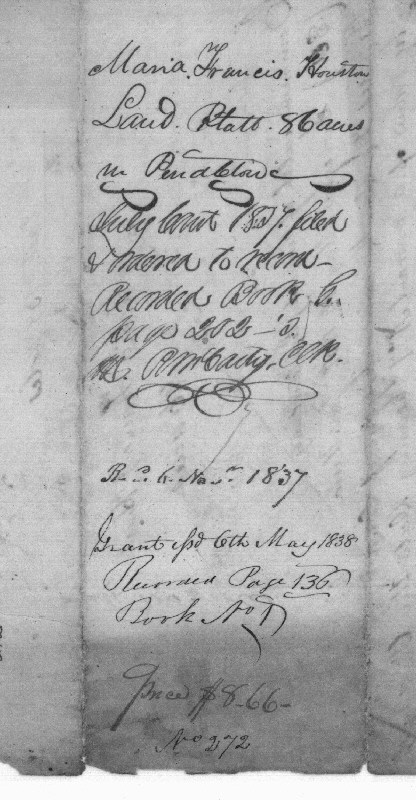 Maria. Francis. Houston
Land. Platt. 86 acres
in Pendleton
July Court 1837. filed
& ordered to record
Recorded Book G.
page 202-3.
Z. B. McCarty, Clk.
Rec. 6 Nov. 1837
Grant issd 6th May 1838
Recorded Page 136
Book No 1
Price $8-66-
No 272